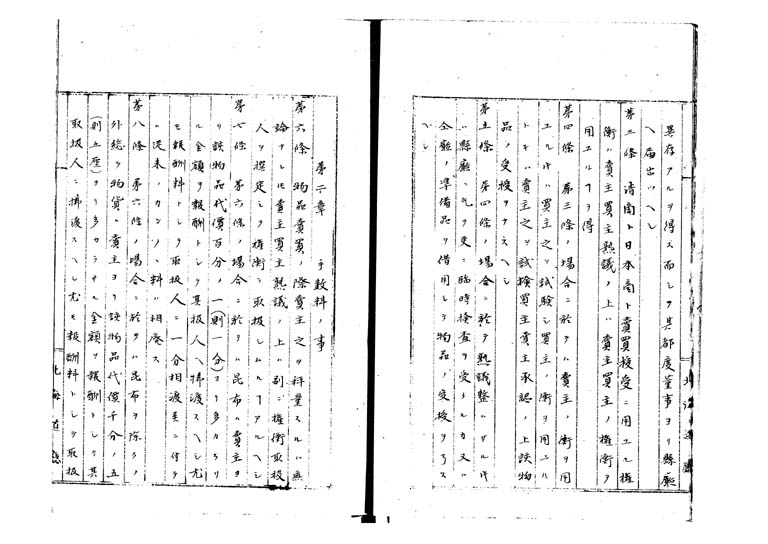 異存アルヲ得ス而シテ其都度董事ヨリ縣廳
ヘ届出ツヘシ
第三條 清商ト日本商ト賣買授受ニ用ユル權
衡ハ賣主買主熟議ノ上ハ賣主買主ノ權衡ヲ
用ユルヿヲ得
第四條 第三條ノ場合ニ於テハ賣主ノ衡ヲ用
ユルトキハ買主之ヲ試験シ買主ノ衡ヲ用ユル
トキハ賣主之ヲ試検買主賣主承認ノ上該物
品ノ受授ヲナスヘシ
第五條 第四條ノ場合ニ於テ熟議整ハサルトキ
ハ縣廳ニ乞ヲ更ニ臨時検査ヲ受クルカ又ハ
仝廳ノ準備品ヲ借用シテ物品ノ受授ヲナス
ヘシ
第二章 手数料ノ事
第六條 物品賣買ノ際賣主之ヲ秤量スルハ無
論ナレトモ賣主買主熟議ノ上ハ別ニ權衡取扱
人ヲ撰定シテ權衡ヲ取扱シムルヿアルヘシ
第七條 第六條ノ場合ニ於テハ昆布ハ賣主ヨ
リ該物品代價百分ノ一(則一分)ヨリ多カラサ
ル金額ヲ報酬トシテ其扱人ヘ拂渡スヘシ尤
モ報酬料トシテ取扱人ニ一分相渡来ニ付テ
ハ従来ノカンカン料ハ相廃ス
第八條 第六條ノ場合ニ於テハ昆布ヲ除クノ
外総テ物貨ハ賣主ヨリ該物品代價千分ノ五
(則五厘)ヨリ多カラサル金額ヲ報酬トシテ其
取扱人ニ拂渡スヘシ尤モ報酬料トシテ取扱
北海道廳